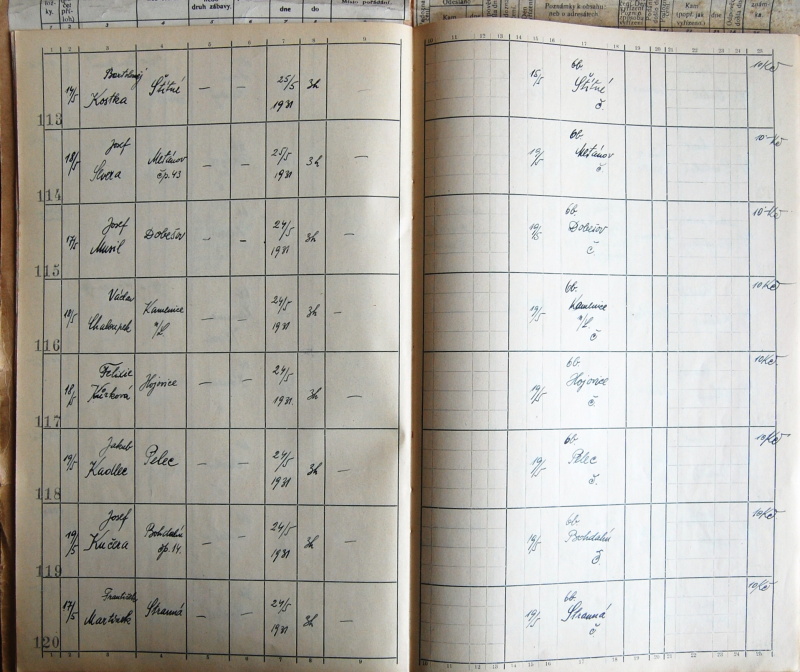 druh zábavy.
dne
do
Místo pořádání.
Kam
Poznámky k obsahu:
neb o adresátech
Kam
(popř. jak
vyřízeno)
dne
1 2 3 4 5 6 7 8 9
10 11 12 13 14 15 16 17 18 19 20 21 22 23 24 25
113 14/5 Bartoloměj Kostka Štítné — — 25/5 1931 3h — 15/5 6b. Štítné č. 10 Kč
114 18/5 Josef Švera Metánov čp. 43 — — 25/5 1931 3h — 19/5 6b. Metánov č 10 Kč
115 17/5 Josef Musil Dobešov — — 24/5 1931 3h — 19/5 6b. Dobešov č. 10 Kč
116 18/5 Václav Chaloupek Kamenice n/L. — — 24/5 1931 3h — 19/5 6b. Kamenice n/L. č 10 Kč
117 18/5 Hojovice — — 24/5 1931. 3h — 19/5 6b. Hojovice č. 10 Kč
118 19/5 Jakub Kadlec Pelec — — 24/5 1931 3h — 19/5 6b. Pelec č. 10 Kč
119 19/5 Josef Kučera Bohdalín čp. 14. — — 24/5 1931 3h — 19/5 6b. Bohdalín č. 10 Kč
120 17/5 František Martínek Stranná — — 24/5 1931 3h — 19/5 6b. Stranná č 10 Kč